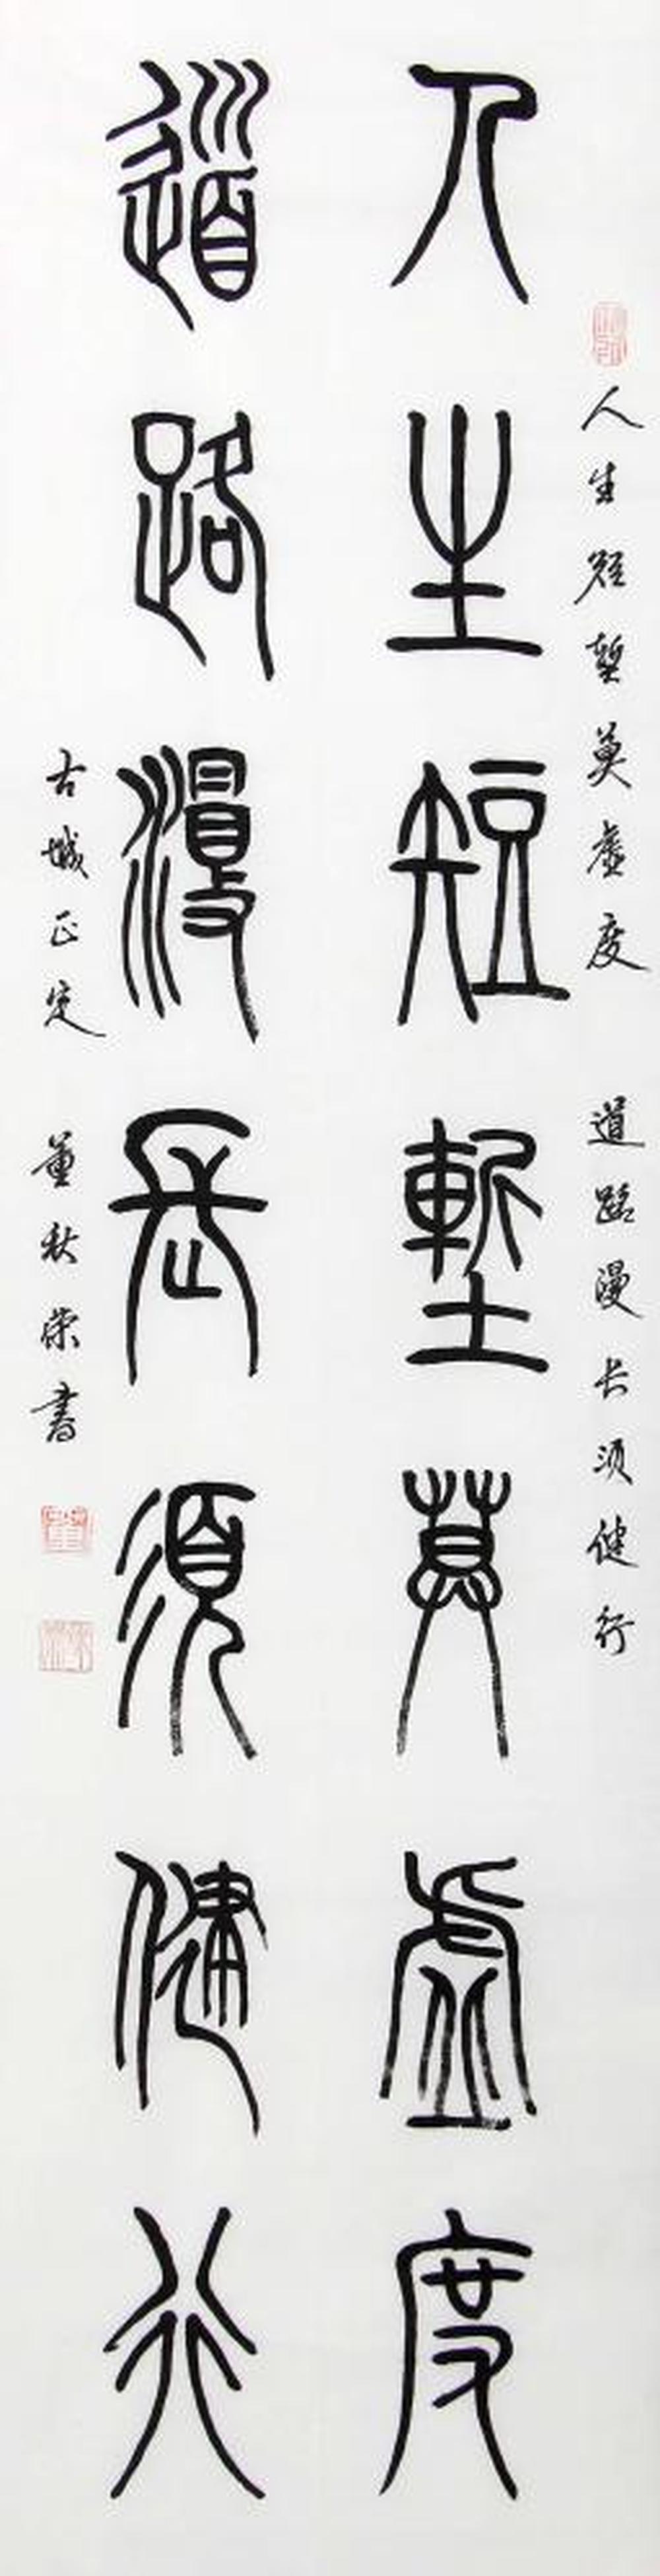 人生短暫莫虛度 道路漫长须健行
人生短暫莫虛度
道路漫長須健行
古城正定 董秋荣書